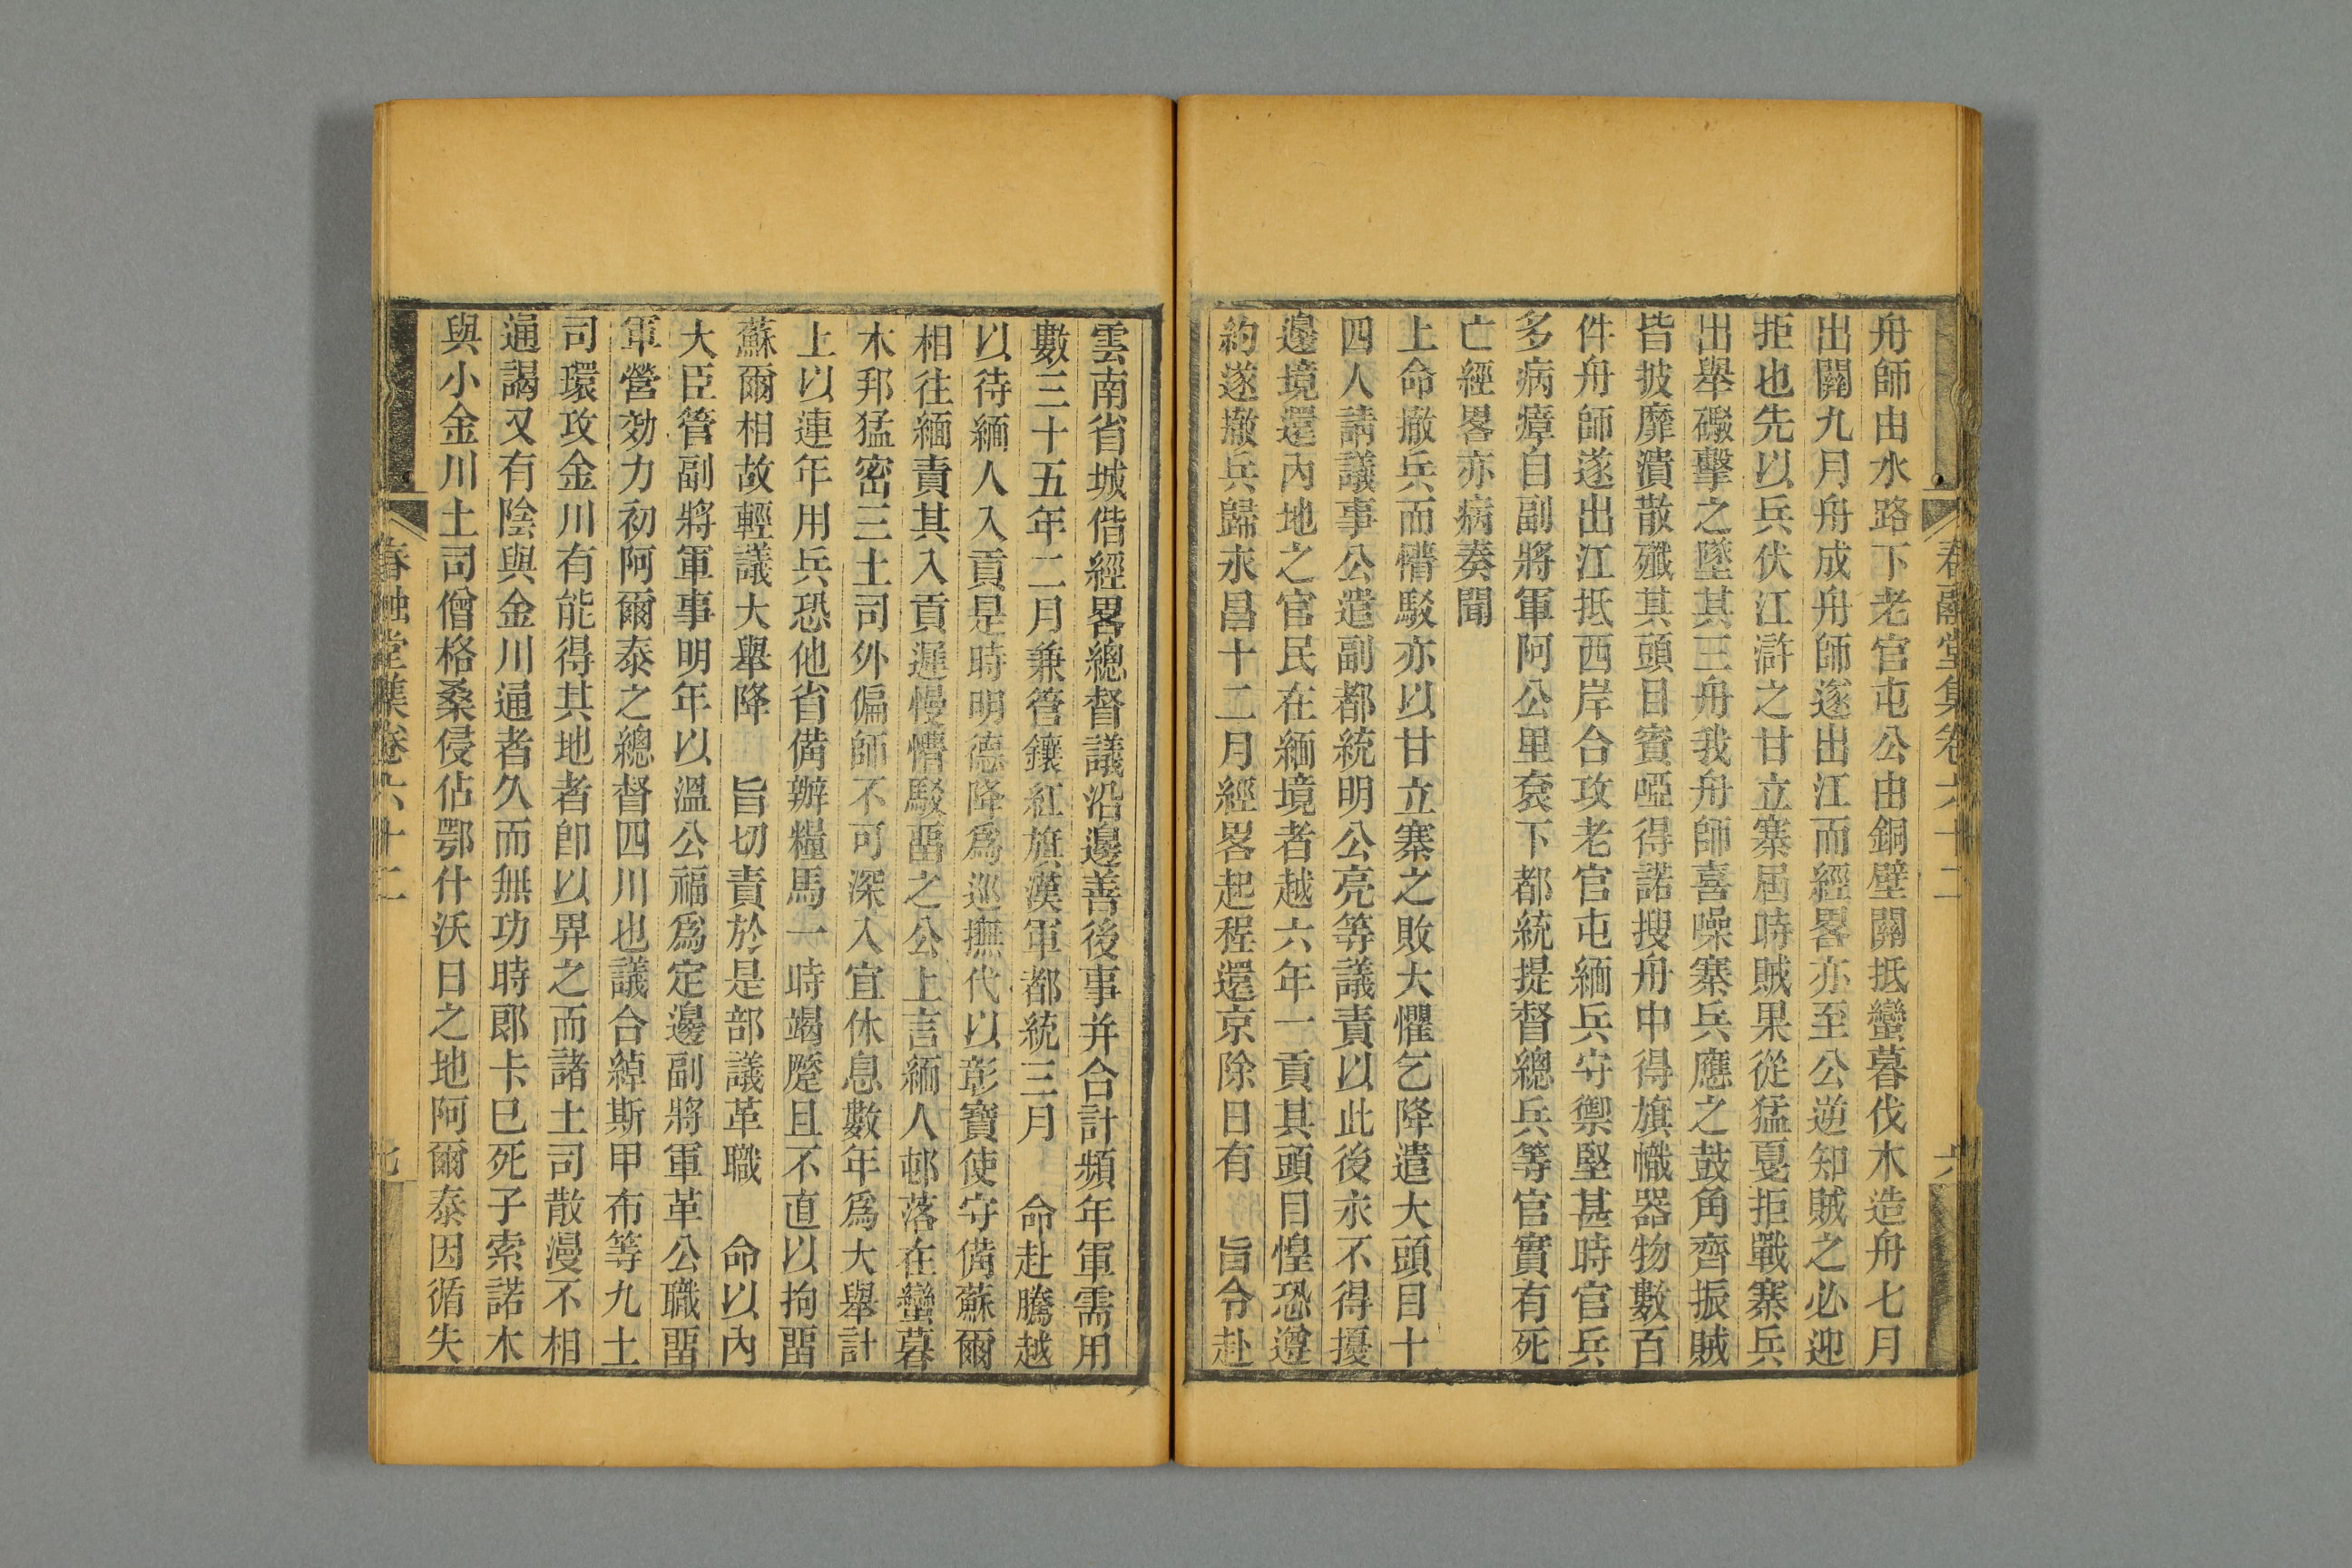 春融堂集卷六十二
六
舟師由水路下老官屯公由銅壁關抵蠻暮伐木造舟七月
出關九月舟成舟師遂出江而經畧亦至公逆知賊之必迎
拒也先以兵伏江滸之甘立寨屆時賊果從猛戛拒戰寨兵
出舉礮擊之墜其三舟我舟師喜噪寨兵應之鼓角齊振賊
皆披靡潰散殲其頭目賓啞得諾搜舟中得旗幟器物數百
件舟師遂出江抵西岸合攻老官屯緬兵守禦堅甚時官兵
多病瘴自副將軍阿公里衮下都統提督總兵等官實有死
亡經畧亦病奏聞
上命撤兵而懵駁亦以甘立寨之敗大懼乞降遣大頭目十
四人請議事公遣副都統明公亮等議責以此後永不得擾
邊境還內地之官民在緬境者越六年一貢其頭目惶恐遵
約遂撤兵歸永昌十二月經畧起程還京除日有　旨令赴
雲南省城偕經畧總督議沿邊善後事并合計頻年軍需用
數三十五年二月兼管鑲紅旗漢軍都統三月　命赴騰越
以待緬人入貢是時明德降爲巡撫代以彰寶使守備蘇爾
相往緬責其入貢遲慢懵駁畱之公上言緬人邨落在蠻暮
木邦猛密三土司外偏師不可深入宜休息數年爲大舉計
上以連年用兵恐他省備辦糧馬一時竭蹷且不直以拘畱
蘇爾相故輕議大舉降　旨切責於是部議革職　命以內
大臣管副將軍事明年以溫公福爲定邊副將軍革公職畱
軍營効力初阿爾泰之總督四川也議合綽斯甲布等九土
司環攻金川有能得其地者卽以畀之而諸土司散漫不相
通謁又有陰與金川通者久而無功時郎卡巳死子索諾木
與小金川土司僧格桑侵佔鄂什沃日之地阿爾泰因循失
春融堂集卷六十二
七